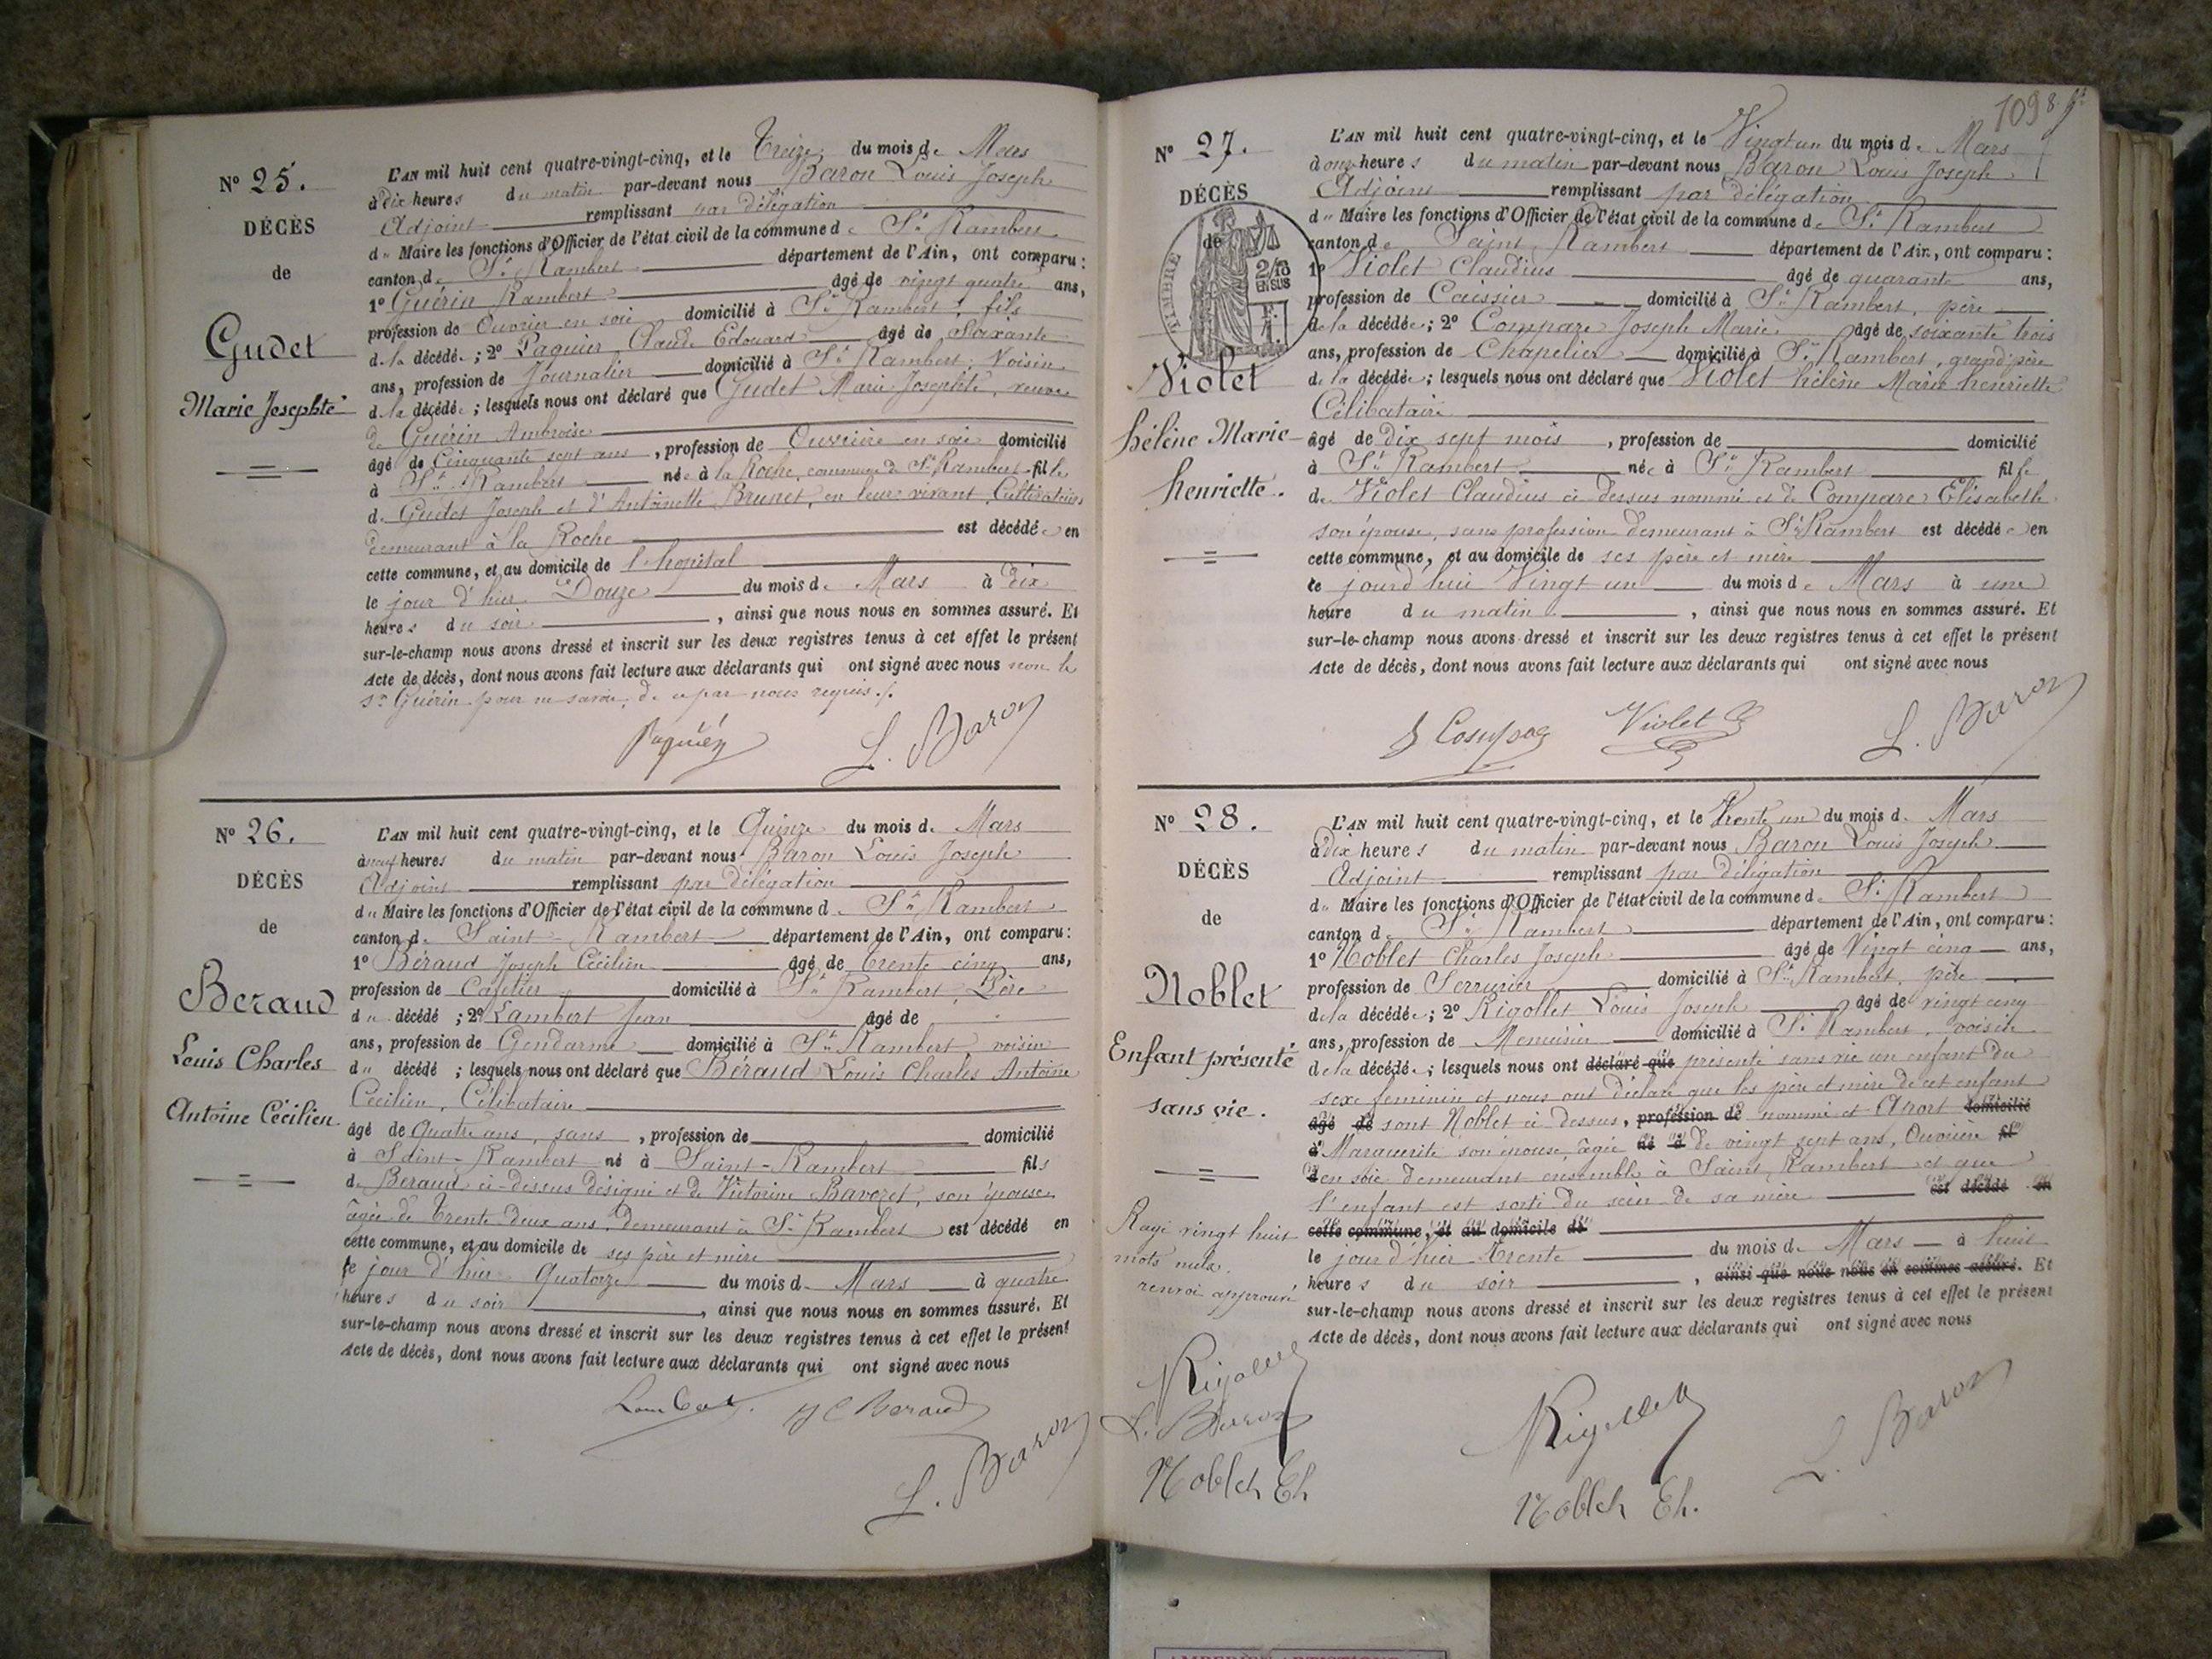 N° 25.
DÉCÈS
de
Gudet
Marie Josephte
L'AN mil huit cent quatre-vingt-cinq, et le Treize du mois de Mars
à dix heures du matin par-devant nous Baron Louis Joseph
Adjoint remplissant par délégation
du Maire les fonctions d'Officier de l'état civil de la commune de St Rambert
canton de St Rambert département de l'Ain, ont comparu :
1° Guérin Rambert âgé de vingt quatre ans,
profession de Ouvrier en soie domicilié à St Rambert, fils
de la décédée ; 2° Paquier Claude Edouard âgé de Soixante
ans, profession de Journalier domicilié à St Rambert, Voisin
de la décédée ; lesquels nous ont déclaré que Gudet Marie Josephte, veuve
de Guérin Ambroise
âgé de Cinquante sept ans, profession de Ouvrière en soie domicilié
à St Rambert née à la Roche, commune de St Rambert fille
de Gudet Joseph et d'Antoinette Brunet, en leur vivant Cultivateurs
demeurant à la Roche est décédée en
cette commune, et au domicile de l'hopital
le jour d'hier Douze du mois de Mars à dix
heures du soir, ainsi que nous nous en sommes assuré. Et
sur-le-champ nous avons dressé et inscrit sur les deux registres tenus à cet effet le présent
Acte de décès, dont nous avons fait lecture aux déclarants qui ont signé avec nous non le
sr Guérin pour ne savoir, de ce par nous requis ./.
Paquier L. Baron
N° 26.
DÉCÈS
de
Beraud
Louis Charles
Antoine Cécilien
L'AN mil huit cent quatre-vingt-cinq, et le Quinze du mois de Mars
à neuf heures du matin par-devant nous Baron Louis Joseph
Adjoint remplissant par délégation
du Maire les fonctions d'Officier de l'état civil de la commune de St Rambert
canton de Saint-Rambert département de l'Ain, ont comparu :
1° Béraud Joseph Cécilien âgé de trente cinq ans,
profession de Cafetier domicilié à St Rambert, Père
du décédé ; 2° Lambert Jean âgé de
ans, profession de Gendarme domicilié à St Rambert voisin
du décédé ; lesquels nous ont déclaré que Béraud Louis Charles Antoine
Cécilien, Célibataire
âgé de Quatre ans, sans, profession de domicilié
à Saint-Rambert né à Saint-Rambert fils
de Beraud ci-dessus désigné et de Victorine Baveret, son épouse
âgée de trente deux ans, demeurant à St Rambert est décédé en
cette commune, et au domicile de ses père et mère
le jour d'hier Quatorze du mois de Mars à quatre
heures du soir, ainsi que nous nous en sommes assuré. Et
sur-le-champ nous avons dressé et inscrit sur les deux registres tenus à cet effet le présent
Acte de décès, dont nous avons fait lecture aux déclarants qui ont signé avec nous
Lambert JC Beraud
L. Baron
109
N° 27.
DÉCÈS
de
TIMBRE
2/10
EN SUS
Violet
hélène Marie
henriette.
L'AN mil huit cent quatre-vingt-cinq, et le Vingt un du mois de Mars
à onze heures du matin par-devant nous Baron Louis Joseph
Adjoint remplissant par délégation
du Maire les fonctions d'Officier de l'état civil de la commune de St Rambert
canton de Saint Rambert département de l'Ain, ont comparu :
1° Violet Claudius âgé de quarante ans,
profession de Caissier domicilié à St Rambert, père
de la décédée ; 2° Compare Joseph Marie âgé de soixante trois
ans, profession de Chapelier domicilié à St Rambert, grand'père
de la décédée ; lesquels nous ont déclaré que Violet hélène Marie henriette
Célibataire
âgé de dix sept mois, profession de domicilié
à St Rambert née à St Rambert fille
de Violet Claudius ci dessus nommé et de Compare Elisabeth
son épouse, sans profession demeurant à St Rambert est décédée en
cette commune, et au domicile de ses père et mère
le jourd'hui Vingt un du mois de Mars à une
heure du matin, ainsi que nous nous en sommes assuré. Et
sur-le-champ nous avons dressé et inscrit sur les deux registres tenus à cet effet le présent
Acte de décès, dont nous avons fait lecture aux déclarants qui ont signé avec nous
Violet L. Baron
N° 28.
DÉCÈS
de
Noblet
Enfant présenté
sans vie.
Rayé vingt huit
mots nuls.
renvoi approuvé
L. Baron
L'AN mil huit cent quatre-vingt-cinq, et le Trente un du mois de Mars
à dix heures du matin par-devant nous Baron Louis Joseph
Adjoint remplissant par délégation
du Maire les fonctions d'Officier de l'état civil de la commune de St Rambert
canton de St Rambert département de l'Ain, ont comparu :
1° Noblet Charles Joseph âgé de Vingt cinq ans,
profession de Serrurier domicilié à St Rambert, père
de la décédée ; 2° Rigollet Louis Joseph âgé de vingt cinq
ans, profession de Menuisier domicilié à St Rambert, voisin
de la décédée ; lesquels nous ont déclaré que présenté sans vie un enfant du
sexe feminin et nous ont déclaré que les père et mère de cet enfant
âgé de sont Noblet ci dessus, profession de nommé et domicilié
à Marguerite son épouse, âgée né à de vingt sept ans, Ouvrière fil
d en soie demeurant ensemble à Saint Rambert et que
l'enfant est sorti du sein de sa mère est décédé en
cette commune, et au domicile de
le jour d'hier trente du mois de Mars à huit
heures du soir, ainsi que nous nous en sommes assuré. Et
sur-le-champ nous avons dressé et inscrit sur les deux registres tenus à cet effet le présent
Acte de décès, dont nous avons fait lecture aux déclarants qui ont signé avec nous
L. Baron